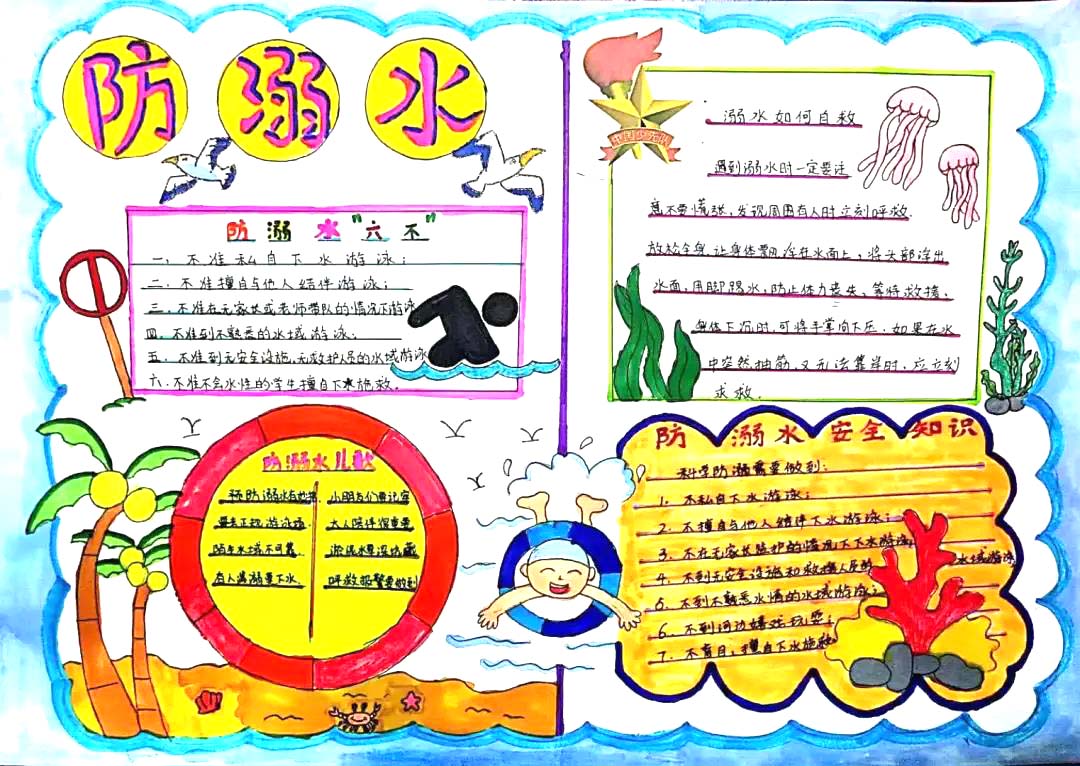 防溺水
防溺水"六不"
一、不准私自下水游泳；
二、不准擅自与他人结伴游泳；
三、不准在无家长或老师带队的情况下游泳
四、不准到不熟悉的水域游泳；
五、不准到无安全设施、无救护人员的水域游泳
六、不准不会水性的学生擅自下水施救。
防溺水儿歌
预防溺水有
小朋友们要记牢
游泳
大人陪伴很重要
陌生水域不可靠
有人落溺要下水
呼救报警要做到
中国少先队
溺水如何自救
遇到溺水时一定要注
意不要慌张，发现周围有人时立刻呼救
放松全身，让身体漂浮在水面上，将头部浮出
水面，用脚踢水，防止体力丧失，等待救援，
身体下沉时，可将手掌向下压，如果在水
中突然抽筋，又无法靠岸时，应立刻
求救.
防溺水安全知识
科学防溺需要做到：
1、不私自下水游泳；
2、不擅自与他人结伴下水游泳；
3、不在无家长监护的情况下下水游泳
4、不到无安全设施和救援人员的水域游泳
5、不到不熟悉水情的水域游泳；
6、不到河边嬉戏玩耍；
7、不盲目、擅自下水施救